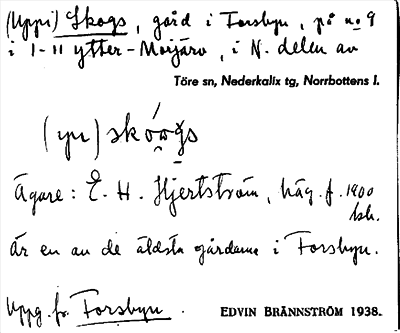 (Uppi) Skogs, gård i Forsbyn, på no 9
i I-II ytter-Morjärv, i N. delen av
Töre sn, Nederkalix tg, Norrbottens l.
Ägare: E. H. Hjertström, häg. f. 1900
bsk.
Är en av de äldsta gårdarna i Forsbyn.
Uppg. fr. Forsbyn.
EDVIN BRÄNNSTRÖM 1938.